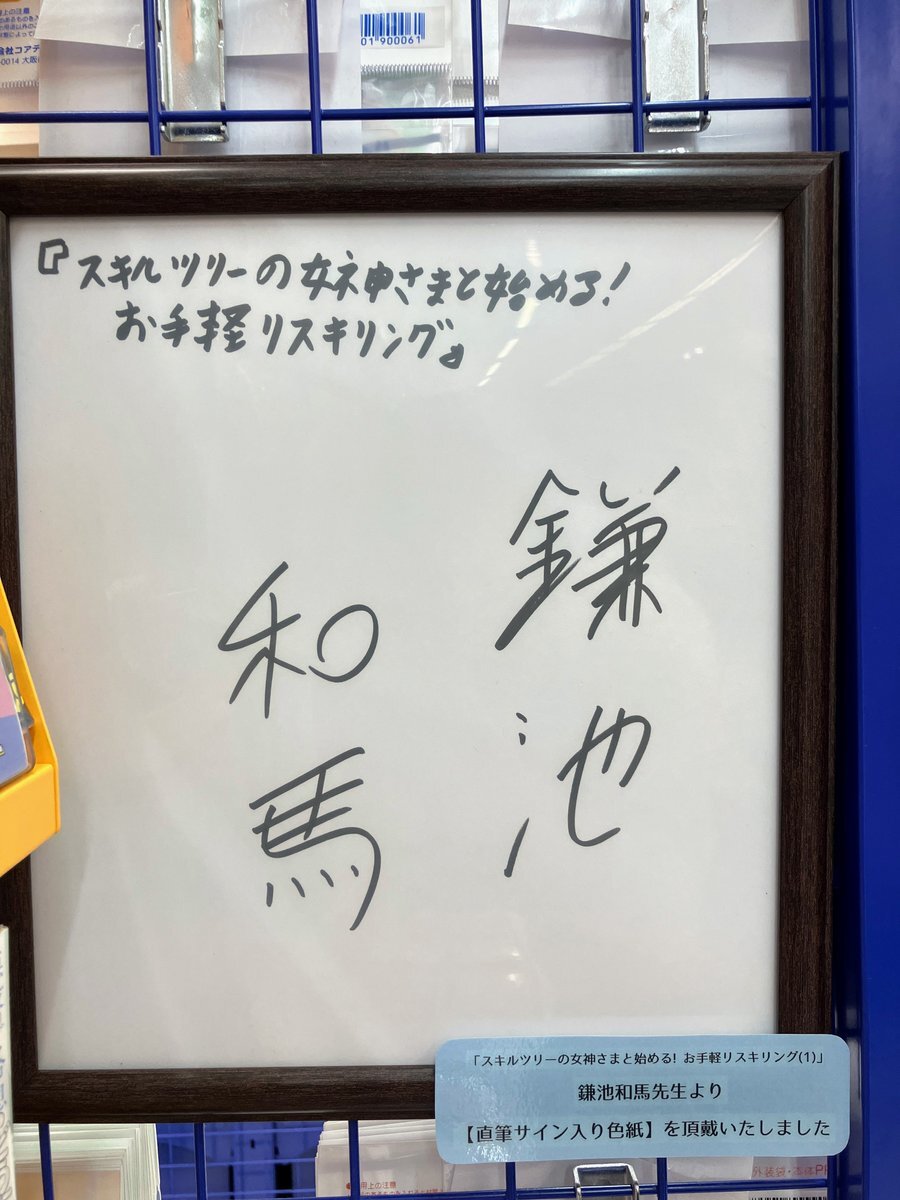 上の注意
会社コアデ
-0014 大阪
01900061
『スキルツリーの女神さまと始める!
お手軽リスキリング』
鎌池
和馬
「スキルツリーの女神さまと始める! お手軽リスキリング(1)」
鎌池和馬先生より
【直筆サイン入り色紙】を頂戴いたしました
用上の注意
外装袋・本体PP